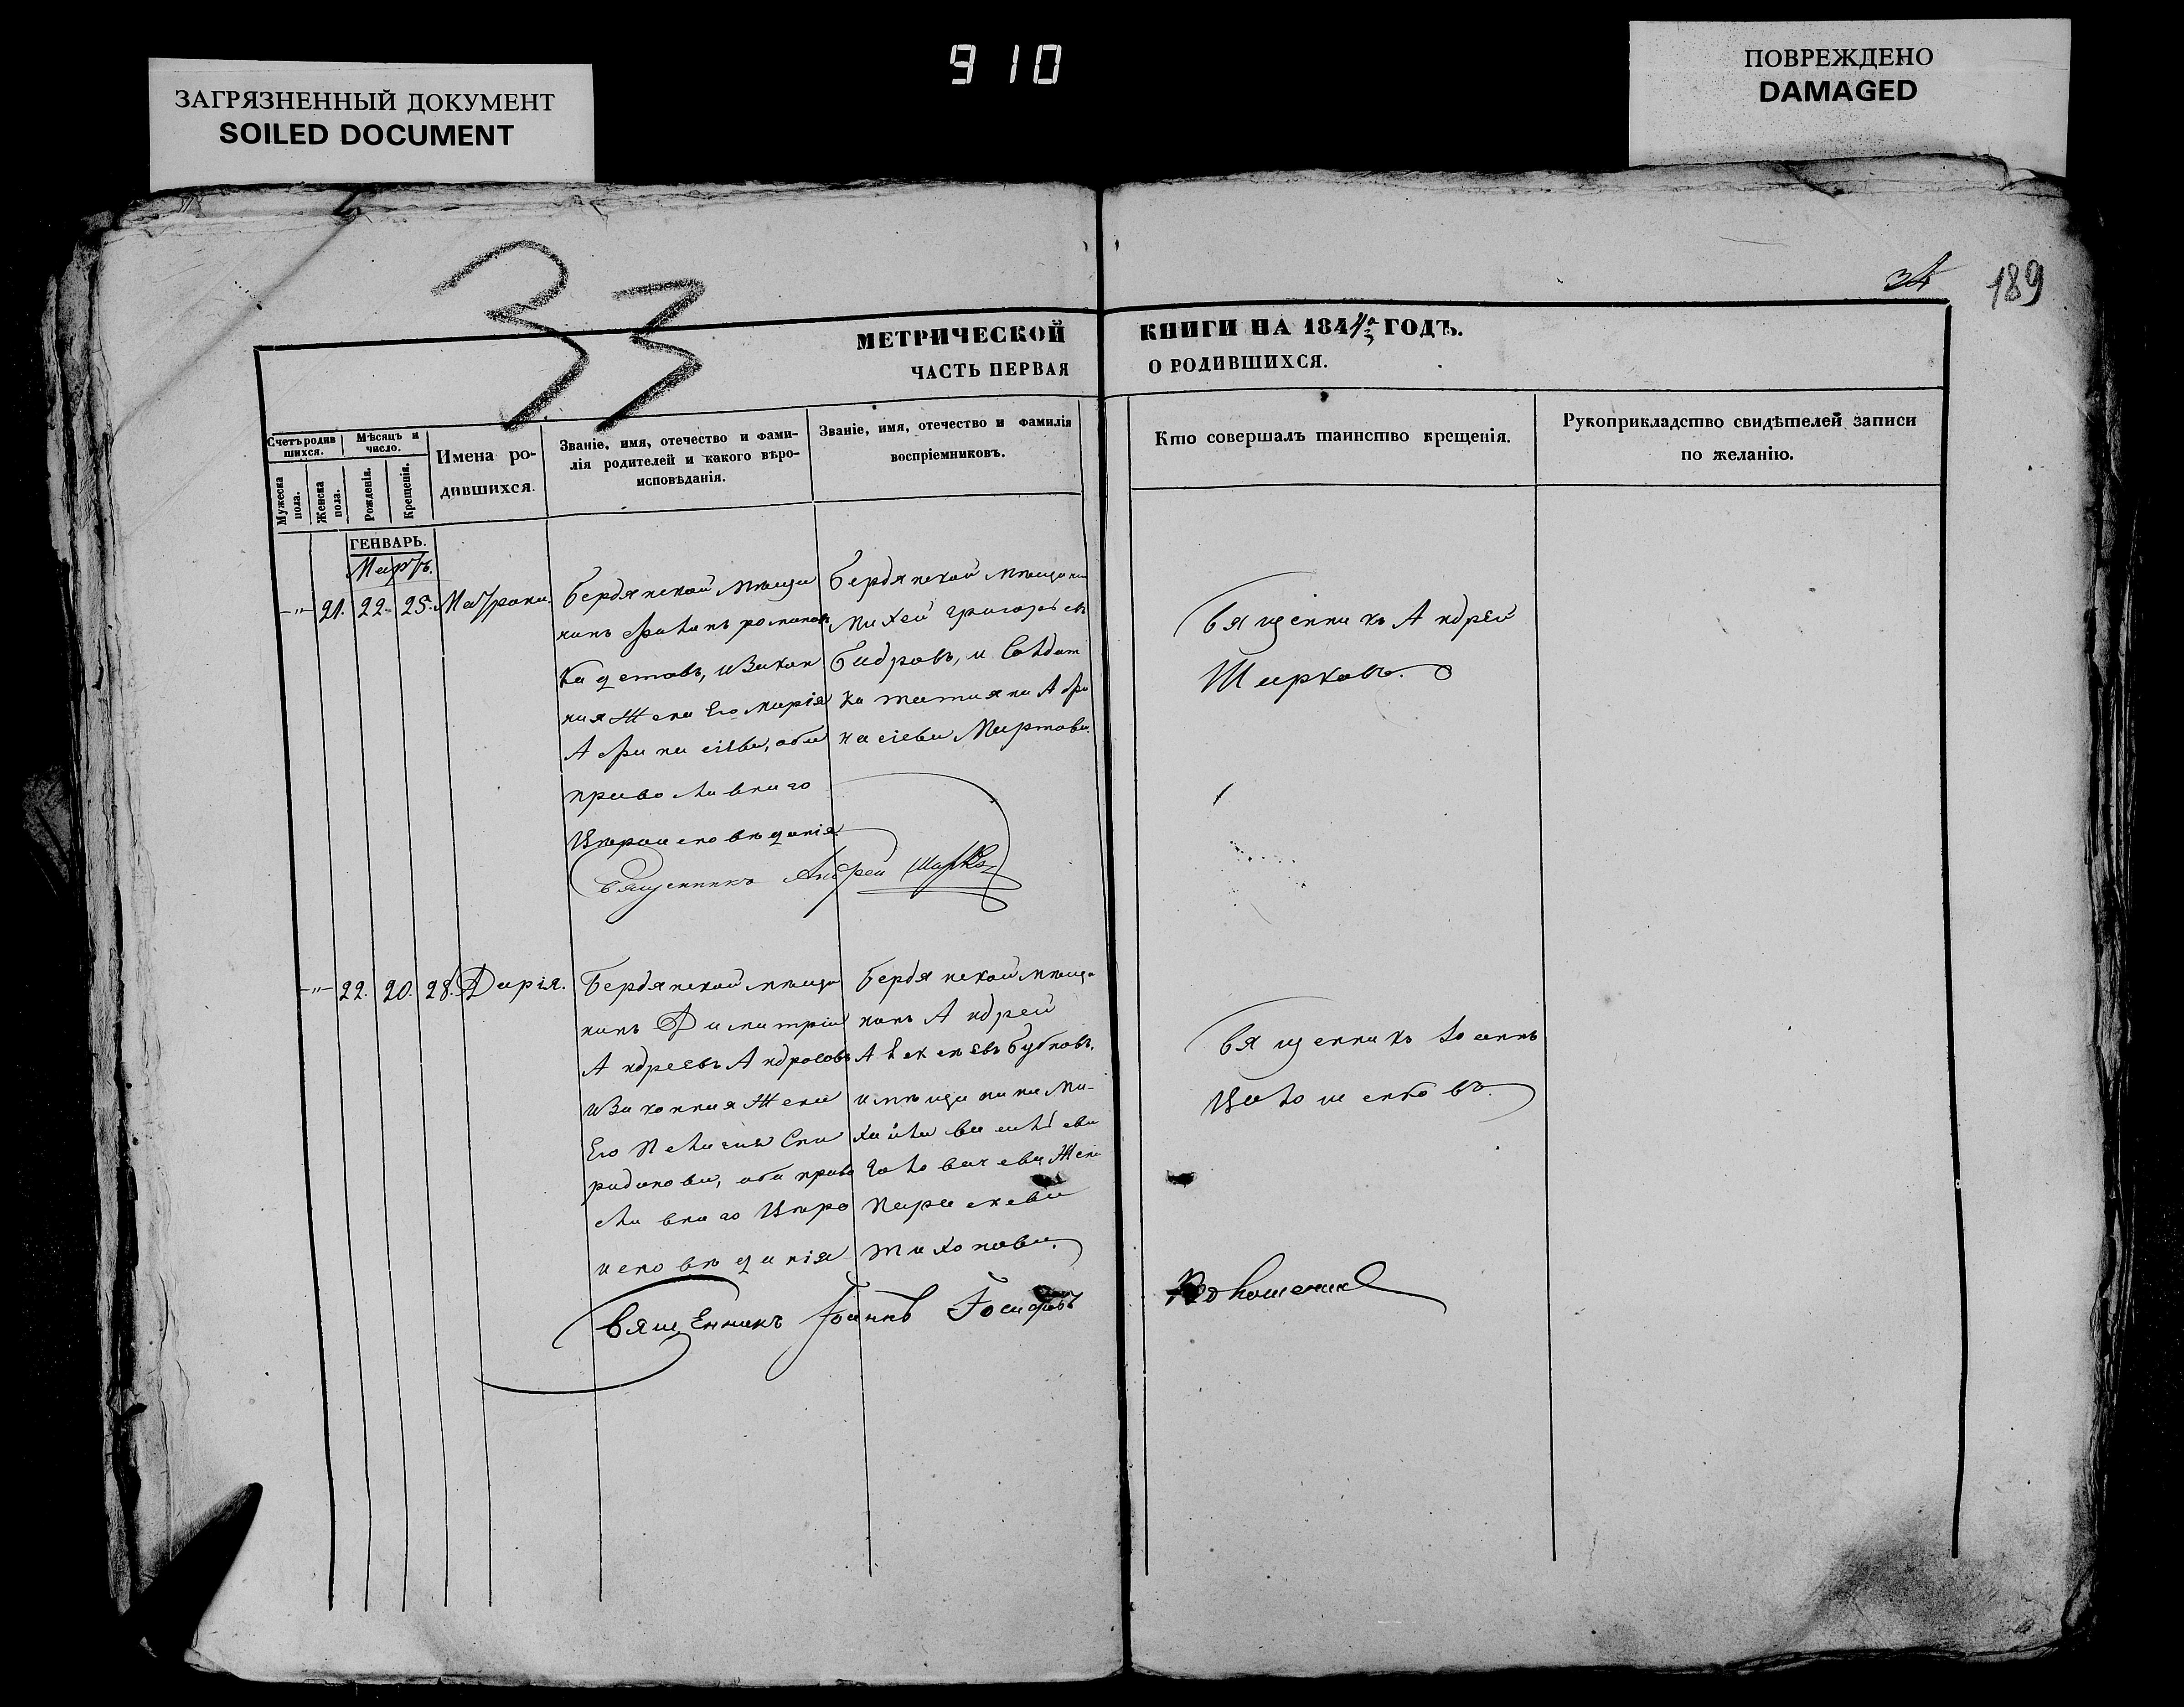 910
ЗАГРЯЗНЕННЫЙ ДОКУМЕНТ
SOILED DOCUMENT
ПОВРЕЖДЕНО
DAMAGED
33
34
189
МЕТРИЧЕСКОЙ КНИГИ НА 1844 ГОДЪ.
ЧАСТЬ ПЕРВАЯ О РОДИВШИХСЯ.
Счетъ родив
шихся.
Мужеска
пола.
Женска
пола.
Мѣсяцъ и
число.
Рожденія.
Крещенія.
Имена ро-
дившихся.
Званіе, имя, отечество и фами-
лія родителей и какого вѣро-
исповѣданія.
Званіе, имя, отечество и фамилія
воспріемниковъ.
Кто совершалъ таинство крещенія.
Рукоприкладство свидѣтелей записи
по желанію.
ГЕНВАРЬ.
Мартъ.
-"- 21. 22. 25. Матрона.
Бердянской мѣща
нинъ Романовъ
Кадетовъ, и Закон
ная Жена Его Марія
Афанасіева, оба
православнаго
Вѣроисповѣданія
Бердянской мѣщанин
Михей Григорьевъ
и Солдат
ка Татияна Афа
насіева Мартова.
Священникъ Андрей
Шарковъ.
Священникъ Андрей Шарковъ
-"- 22. 20. 28. Дарія.
Бердянской мѣща
нинъ Димитрій
Андреевъ Андросовъ
и Законная Жена
Его Пелагия Спи
ридонова, оба право
славнаго Вѣро
исповѣданія
Бердянской мѣща
нинъ Андрей
Алексѣевъ Бубновъ,
и мѣщанина Ми-
хайла Васильева
Головачева Жена
Параскева
Тихонова.
Священникъ Іоаннъ
Священникъ Іоаннъ Іосифовъ